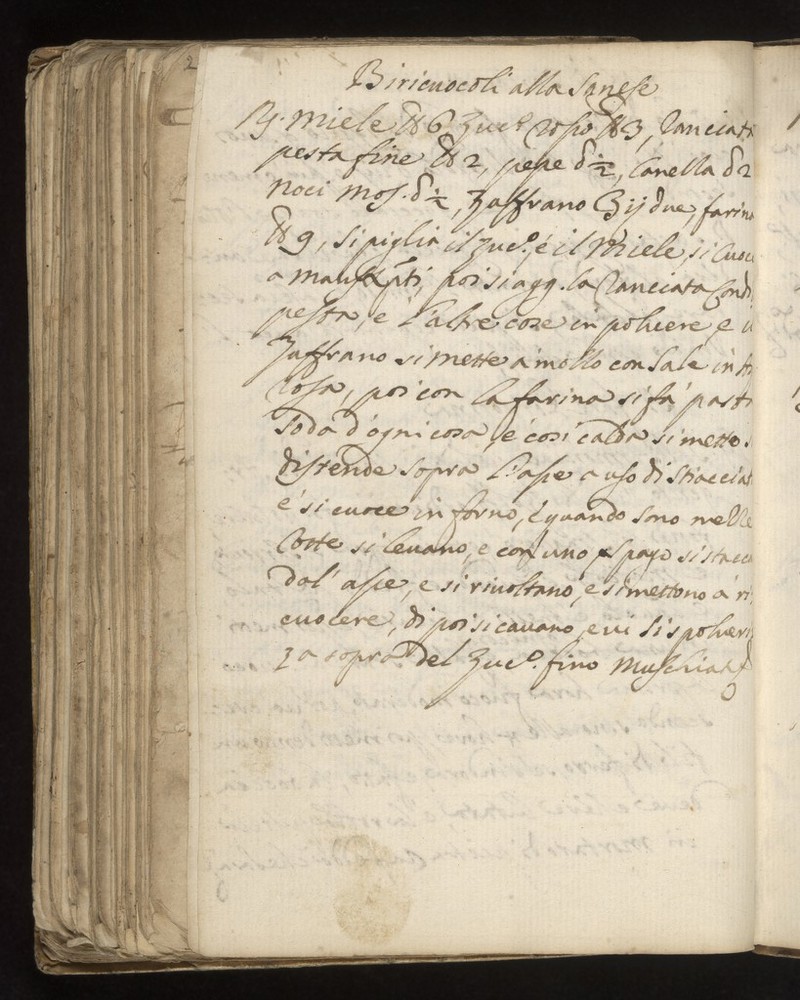 Biricuocoli alla Sanese
℞. Miele ℔ 6 Zucº. rosso ℔ 3, Ranciata
pesta fine ℔ 2, pepe ½, Canella 2
Noci Mos. ½, Zaffrano ʒij due, farina
℔ 9, si piglia il Zucº. é il Miele, si Cuoc
a poi si agg. la Ranciata Cond
pesta, e l'altre cose in poluere e il
Zaffrano si mette a' mollo con Sale in
rosa, poi con la farina si fá past
soda d'ogni cosa, é cosi calda si mette
distende sopra l'asse a uso di stiacciat
é si cuoce in forno, é quando sono mezze
Cotte si leuano, e con uno spago si stacc
dal' asse, e si riuoltano, e si mettono á ri
cuocere, di poi si cauano, e ui si spoluери
za sopra del Zucº. fino Muschiato